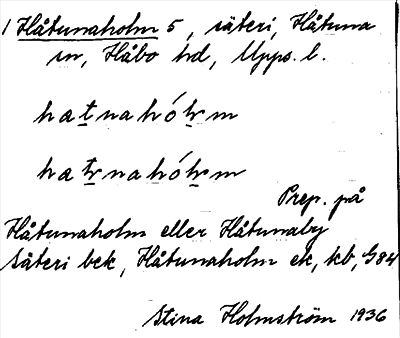 1 Håtunaholm 5, säteri, Håtuna
sn, Håbo hd, Upps. l.
hatnahólm
hatnahólm
Prep. på
Håtunaholm eller Håtunaby
säteri bek, Håtunaholm ek, kb, G84
Stina Holmström 1936